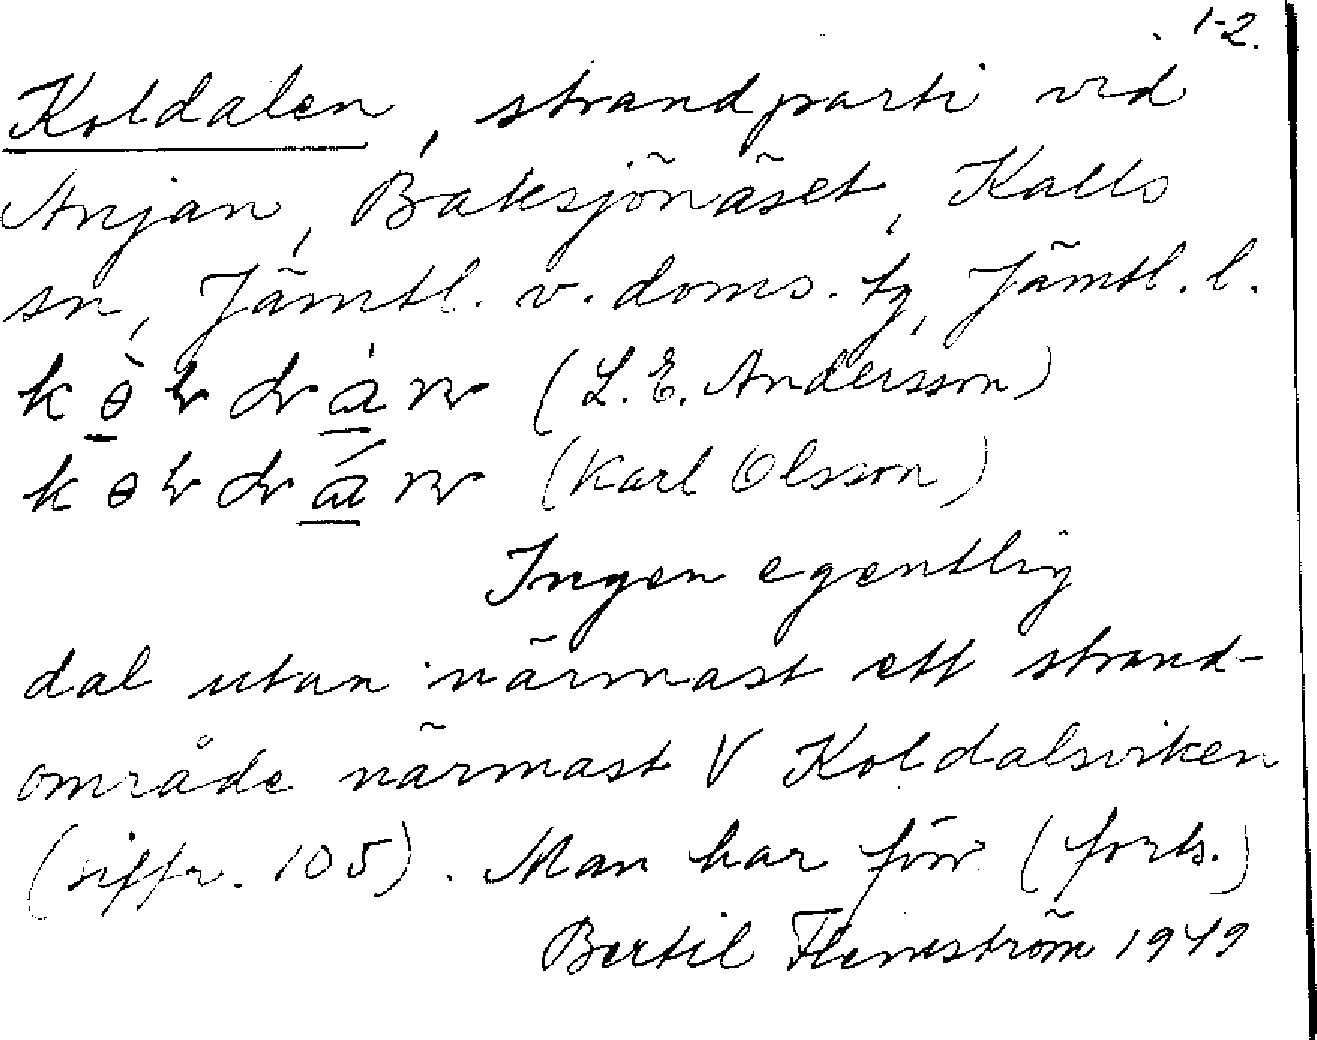 1-2.
Koldalen, strandparti vid
Anjan, Baksjönäset, Kalls
sn, Jämtl. v. doms. tg, Jämtl. l.
(L. E. Andersson)
(Karl Olsson)
Ingen egentlig
dal utan närmast ett strand-
område närmast V Koldalsviken
(siffr. 105). Man har förr (forts.)
Bertil Flemström 1949